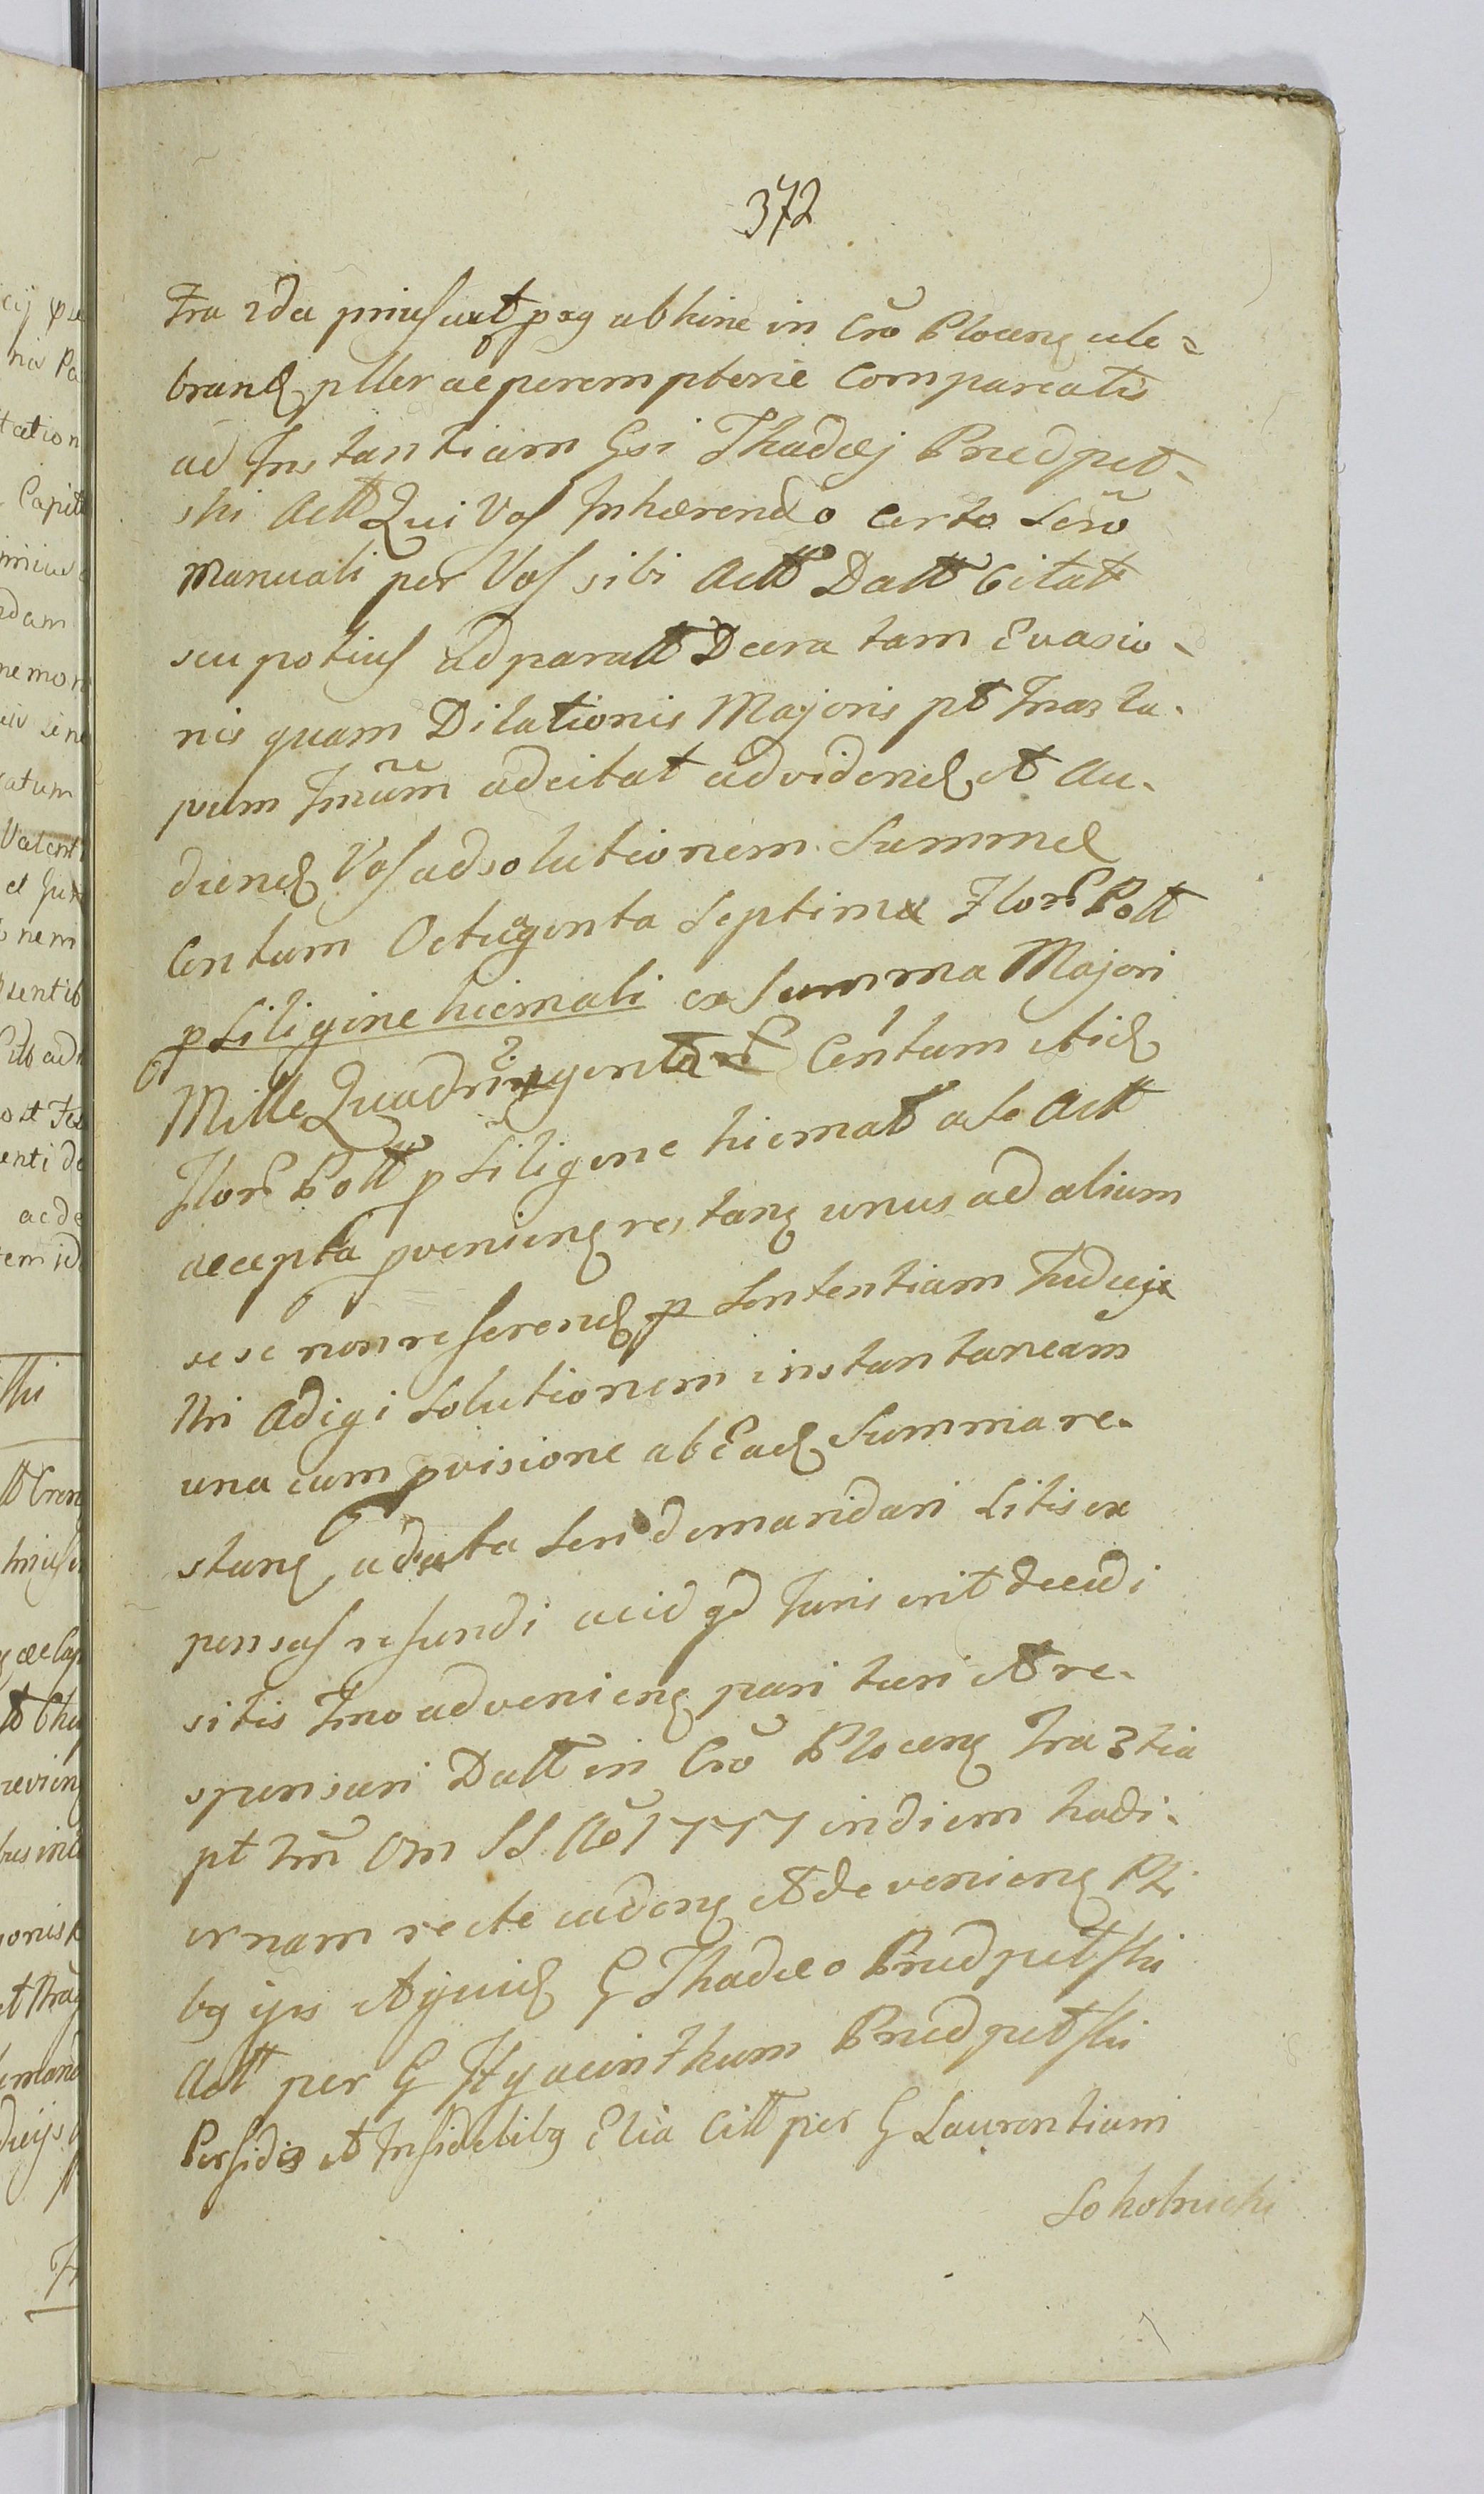 372
Fra 2da prius aut pxg abhinc in Cro Plocenς cele=
brandς pller ac peremptorie Compareatis
ad Instantiam Gsi Thadæj Przedpeł-
ski Actt Qui Vos Inhærendo certo Scro
Manuali per Vos sibi Actt Datt Citat
seu potius ad paratt Decra tam Evasio-
nis quam Dilationis Majoris pt
pum adcitat ad videndς et Au-
diendς Vos ad solutionem Summæ
Centum Octuginta Septima Flor Poll
p Siligine hiemali ex Summa Majori
Mille Quadringent Centum
Flor Poll p Siligine hiemali a se Actt
accepta provenienς restanς unus ad alium
sese non referendς p Sententiam Judicij
Nri Adigi Solutionem instantaneam
una cum provisione ab Eadς Summa re-
stanς, adacta Seri demandari Litis ex
pensas refundi ac id qd Juris erit decidi
sitis Tmo advenienς pari turi Et re-
sponsuri Datt in Cro Plocenς Fra 3tia
pt Om SS Ao 1777 in diem hodi-
ernam recte cadenς Et de venienς Pti
bg ijs Ag G Thadæo Przedpełski
Actt per G Hyacinthum Przedpełski
Perfidis et Infidelibg Elia Citt per G Laurentium
Sokolnicki